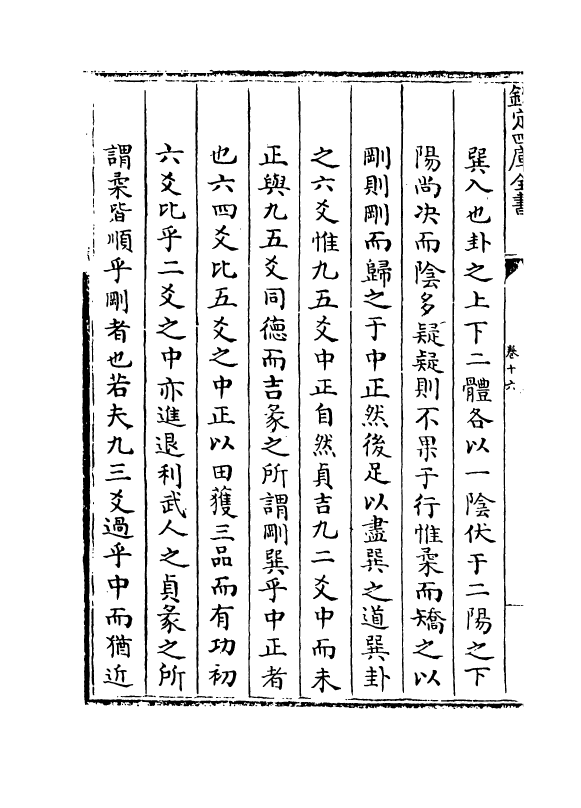 欽定四庫全書
卷十六
巽入也卦之上下二體各以一陰伏于二陽之下
陽尚决而陰多疑疑則不果于行惟柔而矯之以
剛則剛而歸之于中正然後足以盡巽之道巽卦
之六爻惟九五爻中正自然貞吉九二爻中而未
正與九五爻同德而吉彖之所謂剛巽乎中正者
也六四爻比五爻之中正以田獲三品而有功初
六爻比乎二爻之中亦進退利武人之貞彖之所
謂柔皆順乎剛者也若夫九三爻過乎中而猶近